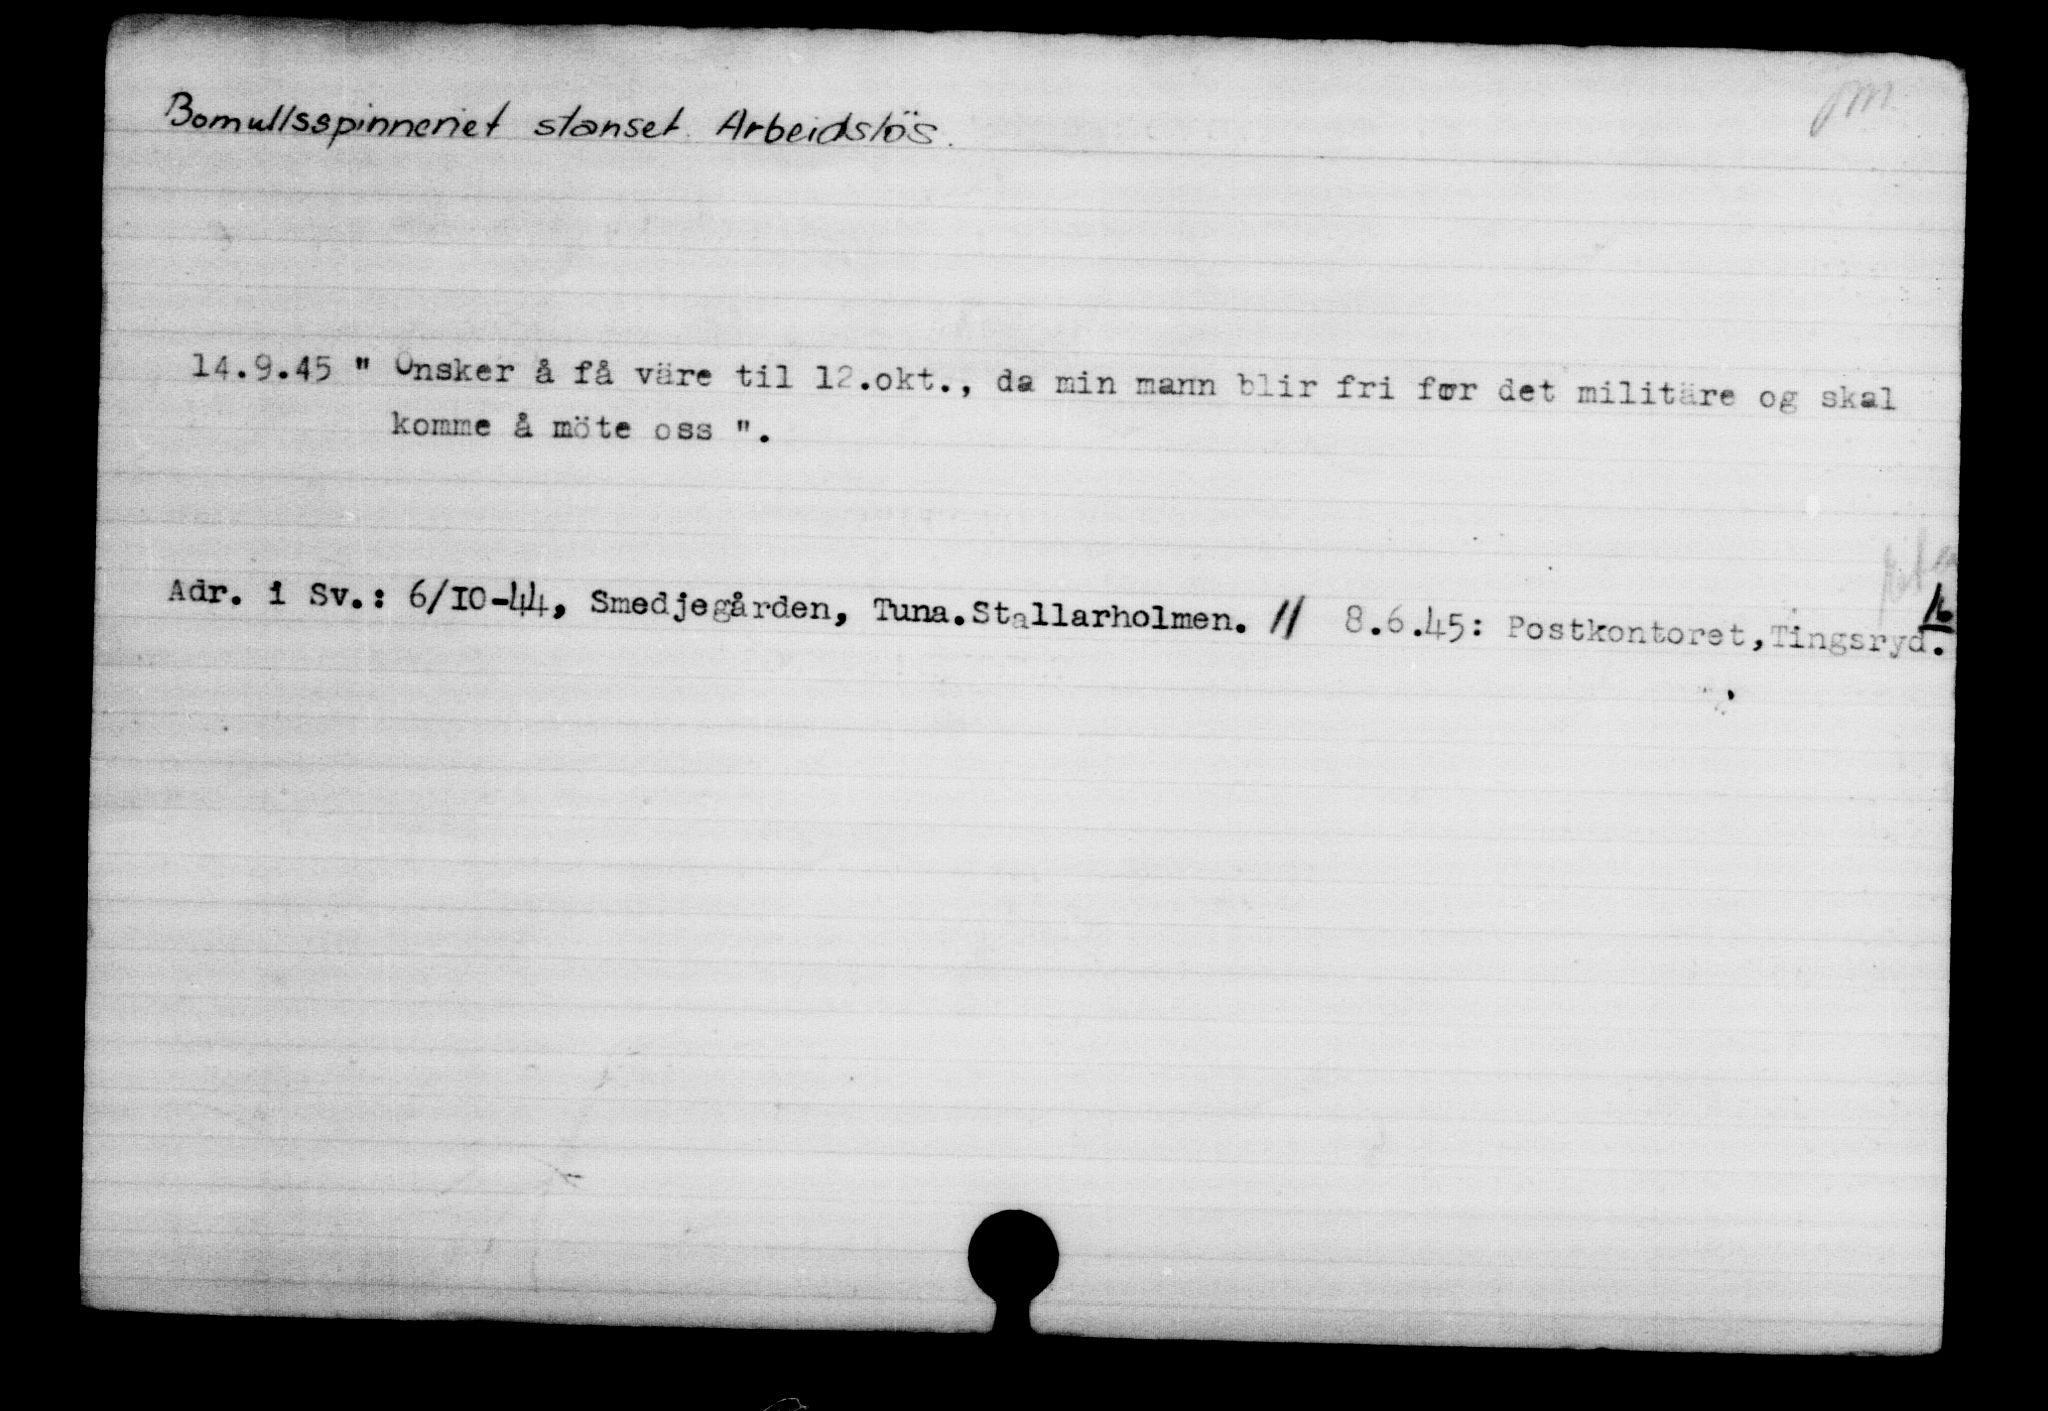 Bomullsspinneriet stanset. Arbeidslös.
14.9.45 " Onsker å få väre til 12.okt., da min mann blir fri før det militäre og skal
komme å möte oss ".
16
Adr. i Sv.: 6/10-44, Smedjegården, Tuna.Stallarholmen. // 8.6.45: Postkontoret,Tingsryd.